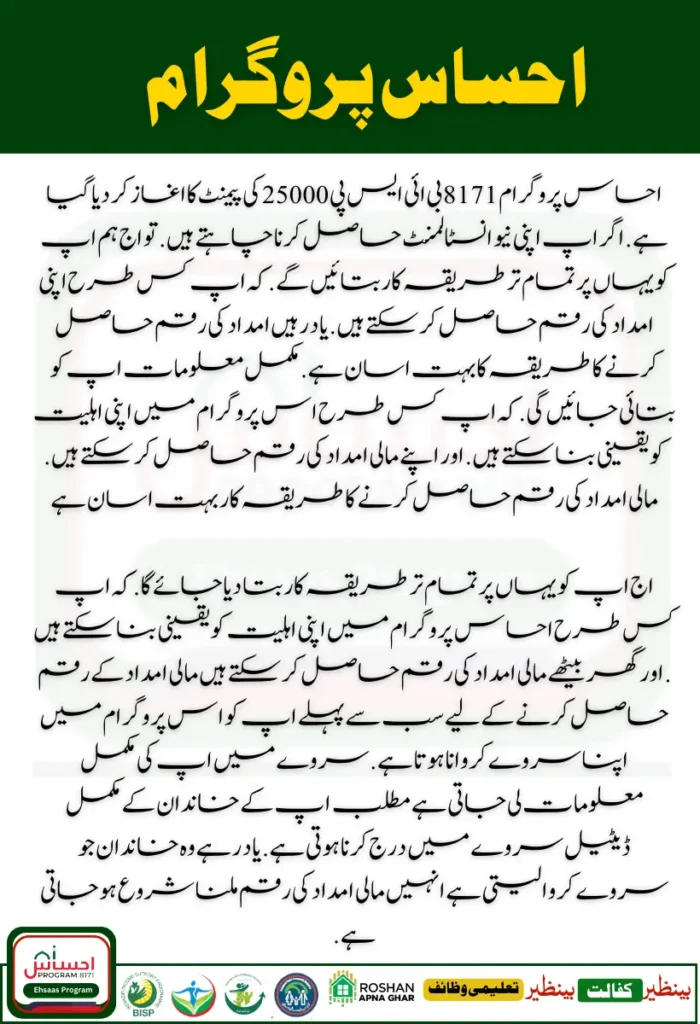 احساس پروگرام
احساس پروگرام 8171 بی ائی ایس پی 25000 کی پیمنٹ کا اغاز کر دیا گیا
ہے. اگر اپ اپنی نیو انسٹالمنٹ حاصل کرنا چاہتے ہیں. تو اج ہم اپ
کو یہاں پر تمام تر طریقہ کار بتائیں گے. کہ اپ کس طرح اپنی
امداد کی رقم حاصل کر سکتے ہیں. یاد رہیں امداد کی رقم حاصل
کرنے کا طریقہ کا بہت اسان ہے. مکمل معلومات اپ کو
بتائی جائیں گی. کہ اپ کس طرح اس پروگرام میں اپنی اہلیت
کو یقینی بنا سکتے ہیں. اور اپنے مالی امداد کی رقم حاصل کر سکتے ہیں.
مالی امداد کی رقم حاصل کرنے کا طریقہ کار بہت اسان ہے
اج اپ کو یہاں پر تمام تر طریقہ کار بتا دیا جائے گا. کہ اپ
کس طرح احساس پروگرام میں اپنی اہلیت کو یقینی بنا سکتے ہیں
. اور گھر بیٹھے مالی امداد کی رقم حاصل کر سکتے ہیں مالی امداد کے رقم
حاصل کرنے کے لیے سب سے پہلے اپ کو اس پروگرام میں
اپنا سروے کروانا ہوتا ہے. سروے میں اپ کی مکمل
معلومات لی جاتی ہے مطلب اپ کے خاندان کے مکمل
ڈیٹیل سروے میں درج کرنا ہوتی ہے. یاد رہے وہ خاندان جو
سروے کروا لیتی ہے انہیں مالی امداد کی رقم ملنا شروع ہو جاتی
ہے.
احساس
PROGRAM 8171
Ehsaas Program
BISP
ROSHAN
APNA GHAR
بینظیر تعلیمی وظائف
بینظیر کفالت